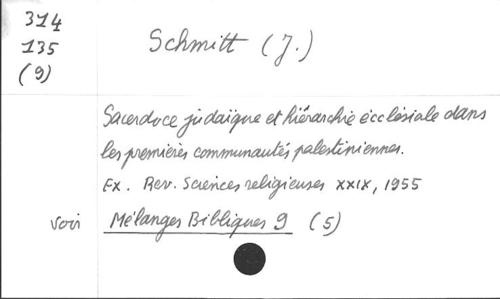 314
135
(9)
Schmitt (J.)
Sacerdoce judaïque et hiérarchie ecclésiale dans
les premières communautés palestiniennes.
Ex. Rev. Sciences religieuses XXIX, 1955
voir Mélanges Bibliques 9 (5)